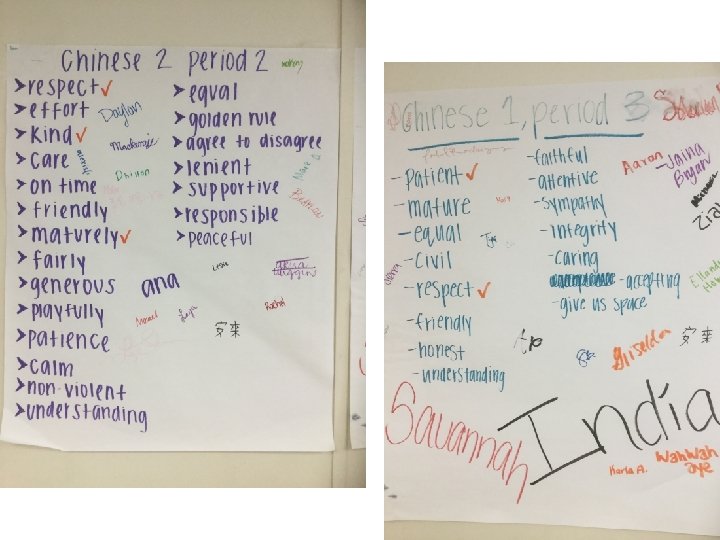 Chinese 2 period 2
➤respect✓
➤effort
➤kind✓
➤care
➤on time
➤friendly
➤maturely✓
➤fairly
➤generous
➤playfully
➤patience
➤calm
➤non-violent
➤understanding
➤equal
➤golden rule
➤agree to disagree
➤lenient
➤supportive
➤responsible
➤peaceful
Daylon
Mackenzie
ana
Rachel
安来
Chinese 1, period 3
-Patient✓
-mature
-equal
-Civil
-respect✓
-friendly
-honest
-understanding
-faithful
-attentive
-sympathy
-integrity
-Caring
-accepting
-give us space
Aaron
Jaina
Bryan
Griselda
安来
Savannah
India
Karla A.
WahWah
aye